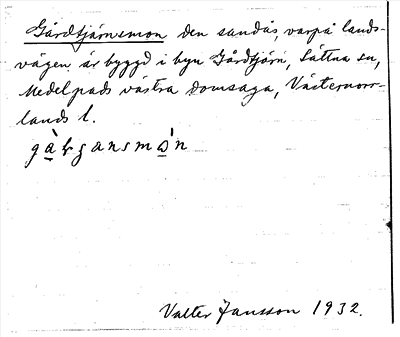 Gårdtjärnsmon den sandås, varpå lands-
vägen är byggd i byn Gårdtjärn, Sättna sn,
Medelpads västra domsaga, Västernorr-
lands l.
Valter Jansson 1932.